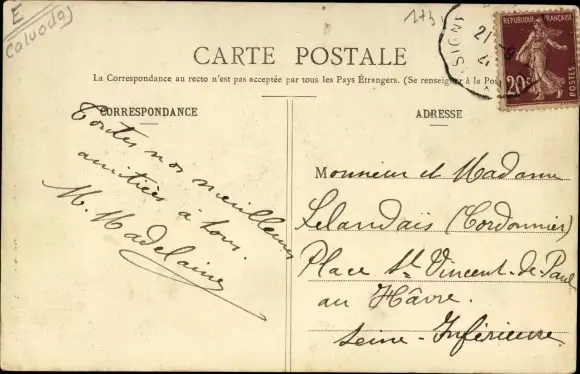 E
Calvados
173
CARTE POSTALE
La Correspondance au recto n'est pas acceptée par tous les Pays Étrangers. (Se renseigner à la Pos
CORRESPONDANCE
ADRESSE
REPUBLIQUE FRANÇAISE
20c
POSTES
21-8
Toutes nos meilleures
amitiés à tous.
M. Madelaine
Monsieur et Madame
Lelandais (Cordonnier)
Place St Vincent-de-Paul
au Hâvre.
Seine-Inférieure